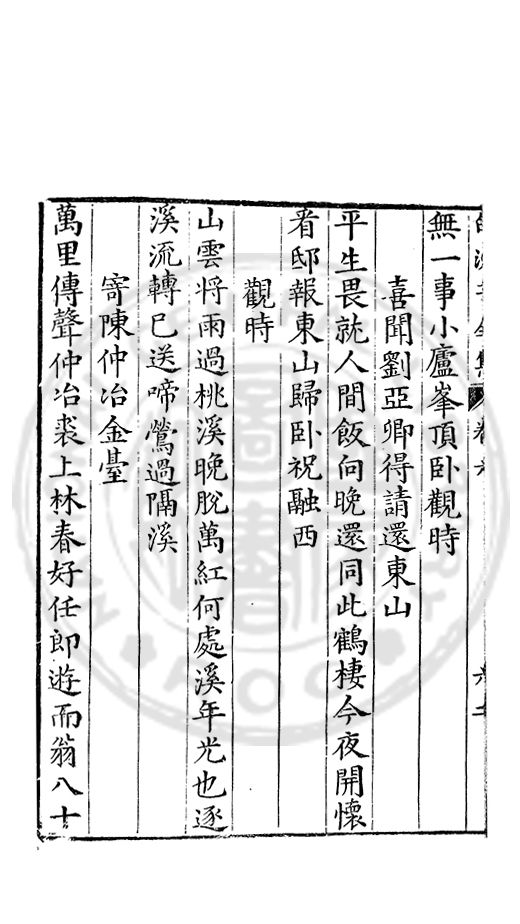 無一事小廬峯頂卧觀時
喜聞劉亞卿得請還東山
平生畏就人間飯向晚還同此鶴棲今夜開懷
看邸報東山歸卧祝融西
觀時
山雲將雨過桃溪晚脫萬紅何處溪年光也逐
溪流轉已送啼鶯過隔溪
寄陳仲冶金臺
萬里傳聲仲冶裘上林春好任郎遊而翁八十